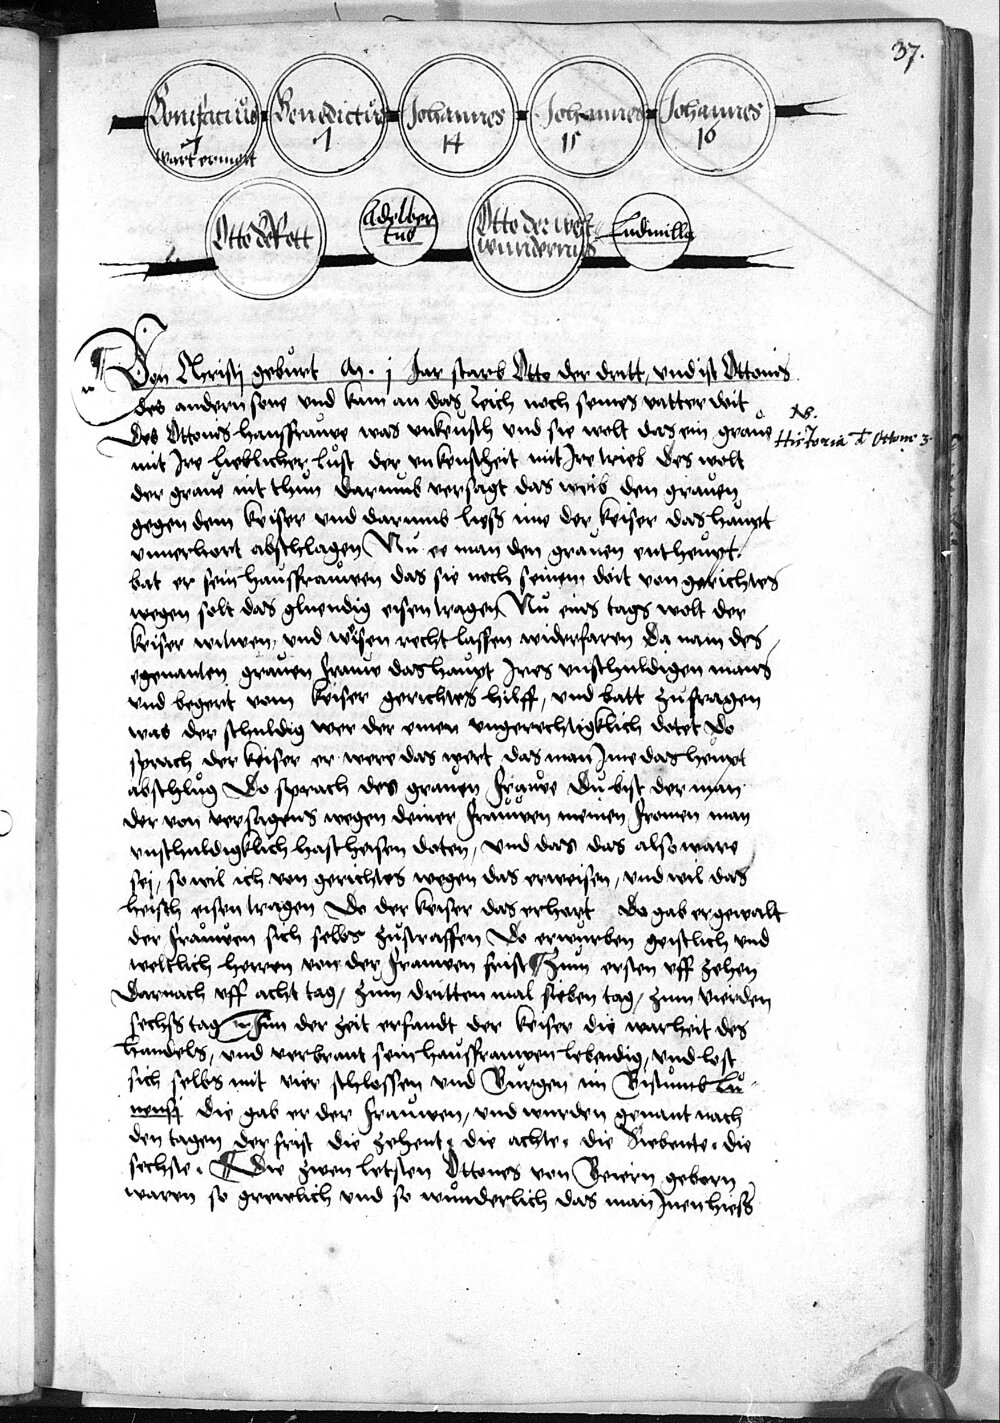 37.
Bonifacius Benedictus Johannes Johannes Johannes
7 7 14 15 16
wart ermort
Otto der Rott Adelber
tus Otto der welt
wundernus Ludmilla
Von Christi geburt M. j Jar starb Otto der dritt, und ist Ottonis
des andern sone und kam an das Reich noch seines vatter doit
Des Ottonis haussfrauwe was unkeusch und sie wolt das ein graue
NB.
Historia de Ottone 3.
mit Ire lieblicher lust der unkeuscheit mit Ire trieb des wolt
der graue nit thun darumb versagt das weib den grauen
gegen dem keiser und darumb liess ime der keiser das haupt
unuerhort abschlagen Nu ee man den grauen entheupt
bat er sein haussfrauwen das sie noch seinem doit von gerichtes
wegen solt das gluendig eisen tragen Nu eins tags wolt der
keiser witwen und waisen recht lassen widerfaren Da nam des
egenanten grauen frauw das haupt Ires unschuldigen mans
und begert vom keiser gerichtes hilff, und batt zufragen
was der schuldig wer der einen ungerechtigklich dotet Do
sprach der keiser er were das wert das man Ime das heupt
abschlug Do sprach des grauen frauwe Du bist der man
der von versagens wegen deiner frauwen meinen fromen man
unschuldigklich hast heisen doten, und das das also ware
sej, so wil ich von gerichtes wegen das erweisen, und wil das
heiss eisen tragen Do der keiser das erhort do gab er gewalt
der frauwen sich selbs zustraffen Do erwurben geistlich und
weltlich herren von der frauwen frist Zum ersten uff zehen
Darnach uff acht tag, zum dritten mal sieben tag, zum vierden
sechs tag In der zeit erfandt der keiser die warheit des
handels, und verbrant sein haussfrauwen lebendig, und lost
sich selbs mit vier schlossen und Burgen im Bistumb Lu-
nensi die gab er der frauwen, und wurden genant nach
den tagen der frist die zehent, die achte, die Siebente, die
sechste. Die zwen letsten Ottones von Beiern geborn
waren so grewlich und so wunderlich das man Inen hiess